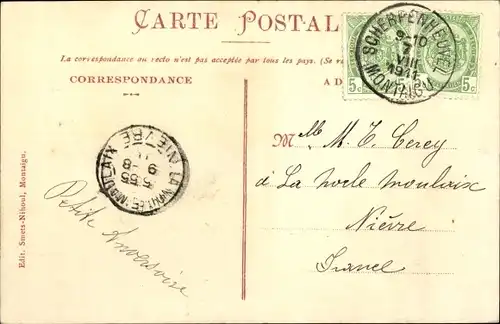 CARTE POSTAL
La correspondance au recto n'est pas acceptée par tous les pays. (Se
CORRESPONDANCE
AD
SCHERPENHEUVEL
9-10
7
VIII
1911
MONTAIGU
5c 5c
Mlle M. T. Cerey
à La
Nièvre
France
NIÈVRE
5.55
9-8
11
Petite
Edit. Smets-Nihoul, Montaigu.